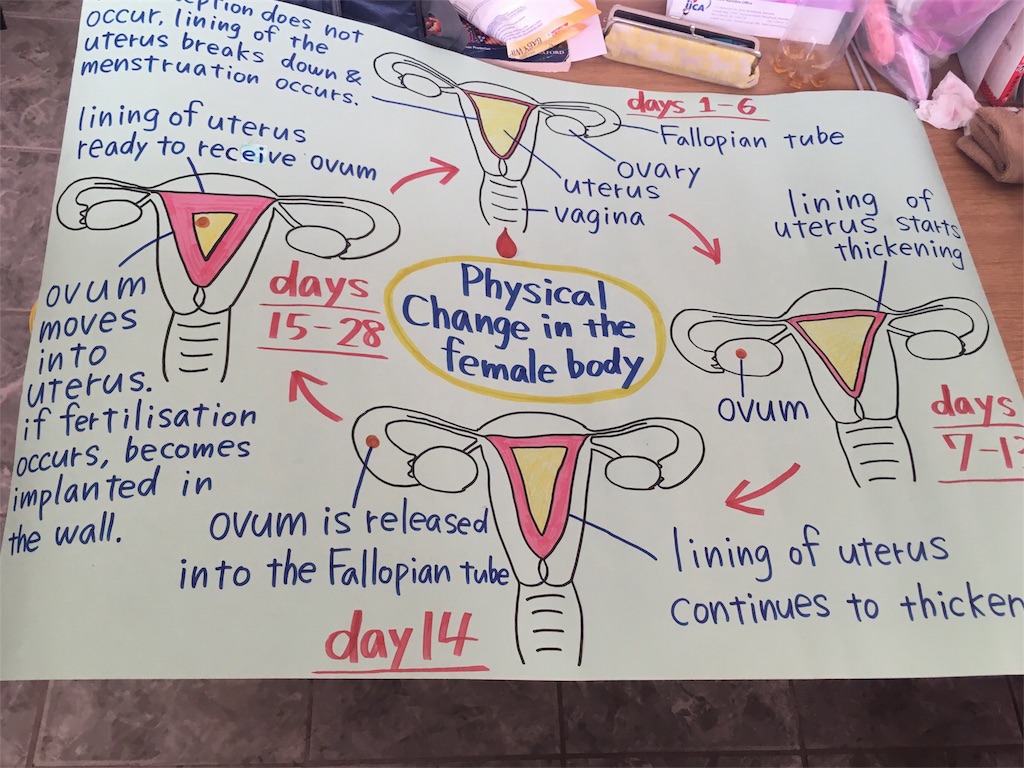 occur, lining of the
uterus breaks down &
menstruation occurs.
does not
lining of uterus
ready to receive ovum
days 1-6
Fallopian tube
ovary
uterus
vagina
lining of
uterus starts
thickening
ovum
days
7-13
Physical
Change in the
female body
days
15-28
ovum
moves
into
uterus.
if fertilisation
occurs, becomes
implanted in
the wall.
ovum is released
into the Fallopian tube
day 14
lining of uterus
continues to thicken
BABY WIP
jica